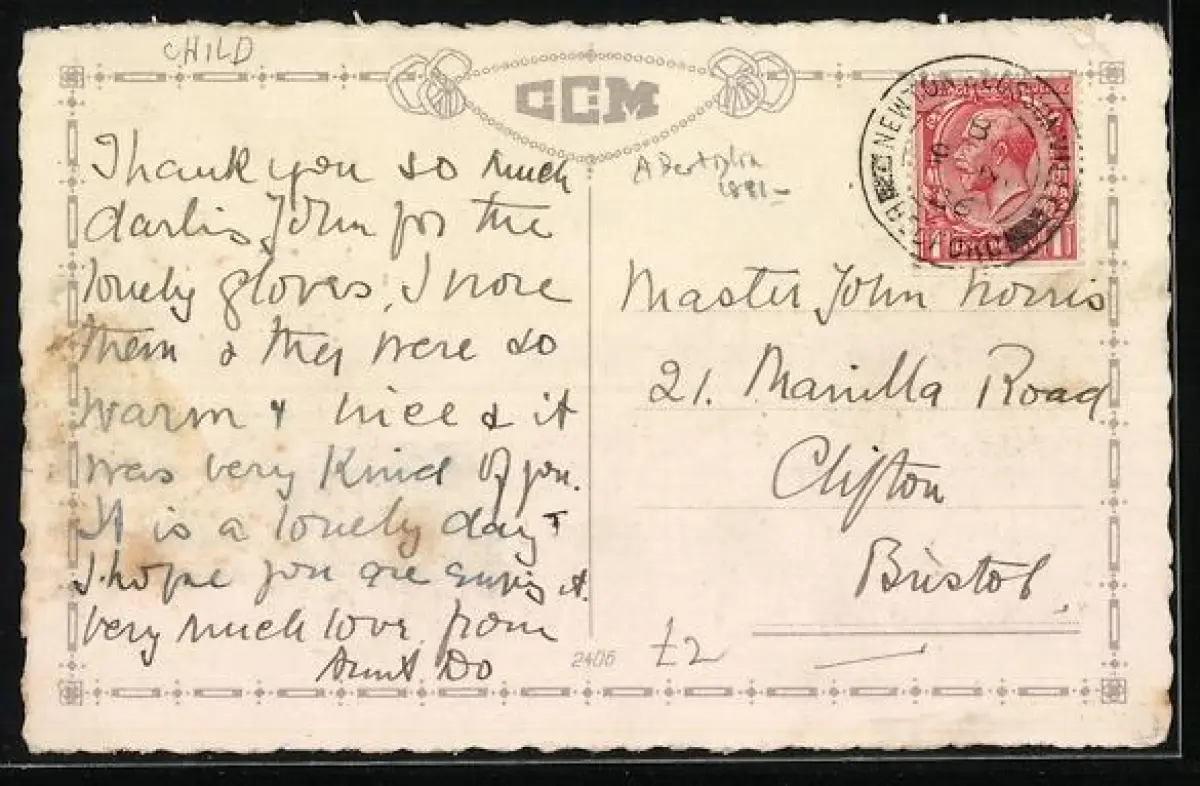 CHILD
CCM
Thank you so much
darling John for the
lovely gloves, I wore
them & they were so
warm & nice & it
was very kind of you.
It is a lovely day &
I hope you are enjoying it.
Very much love from
Aunt Do
A Bertiglia
1891-
NEWTON
Master John Norris
21. Manilla Road
Clifton
Bristol
2405
£2